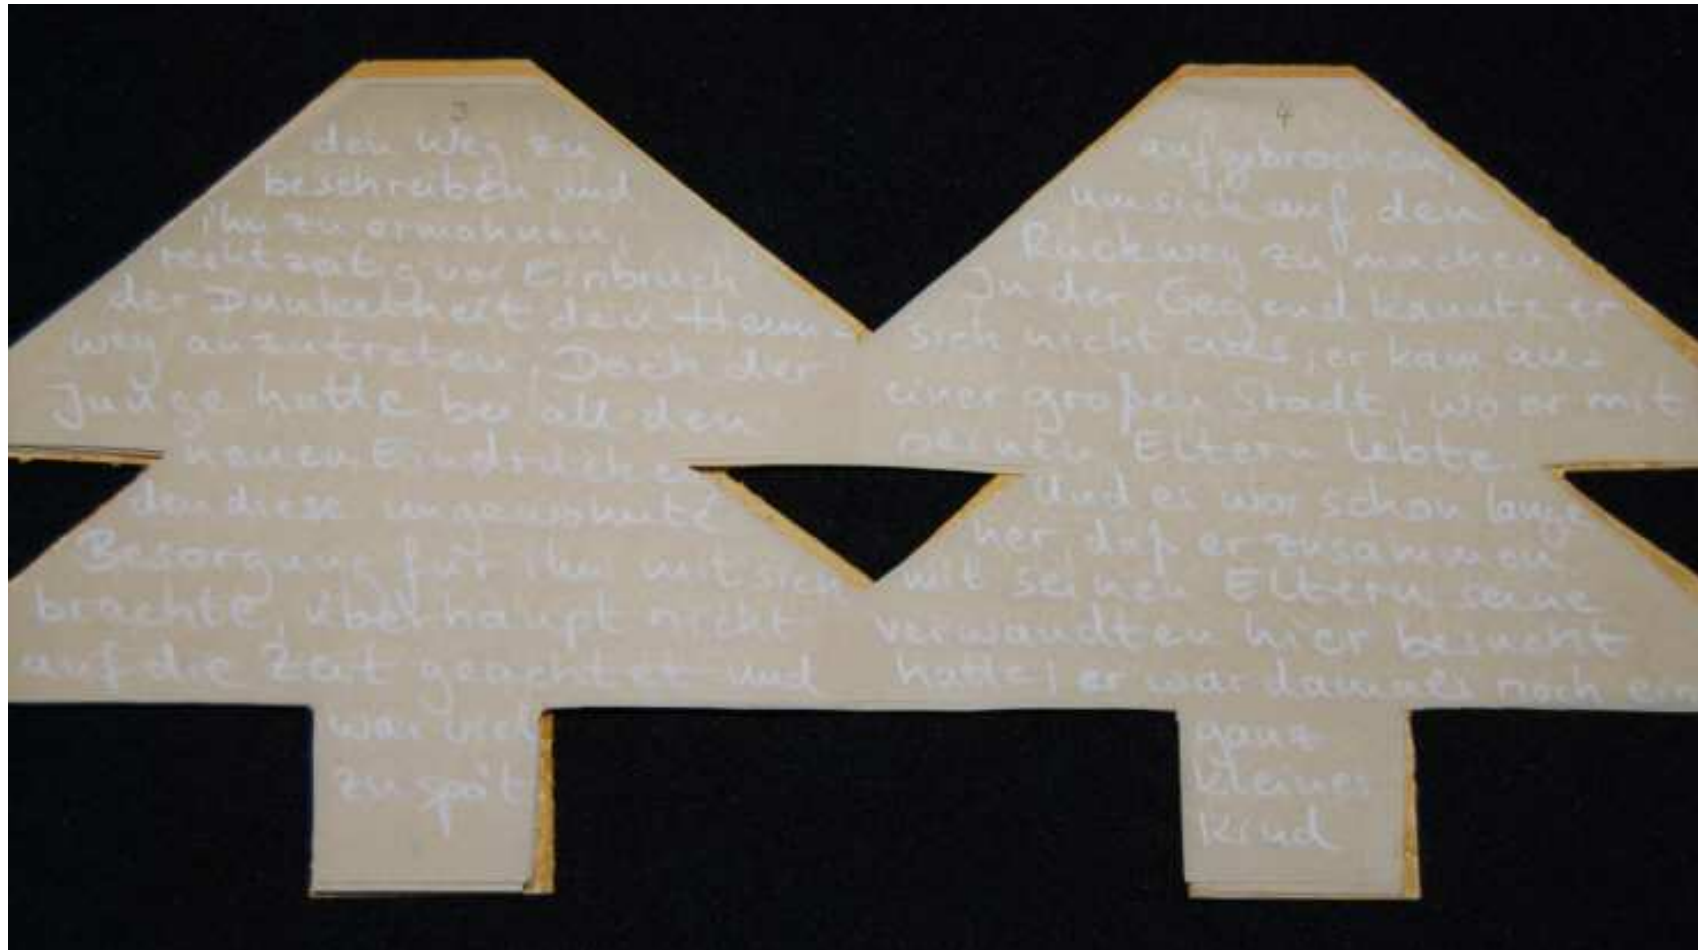 3
den Weg zu
beschreiben und
ihn zu ermahnen,
rechtzeitig vor Einbruch
der Dunkelheit den Heim-
weg anzutreten. Doch der
Junge hatte bei all den
neuen Eindrücken
den diese ungewohnte
Besorgung für ihn mit sich
brachte, überhaupt nicht
auf die Zeit geachtet und
war viel
zu spät
4
aufgebrochen,
um sich auf den
Rückweg zu machen.
In der Gegend kannte er
sich nicht aus, er kam aus
einer großen Stadt, wo er mit
seinen Eltern lebte.
Und es war schon lange
her, daß er zusammen
mit seinen Eltern seine
verwandten hier besucht
hatte, er war damals noch ein
ganz
kleines
Kind